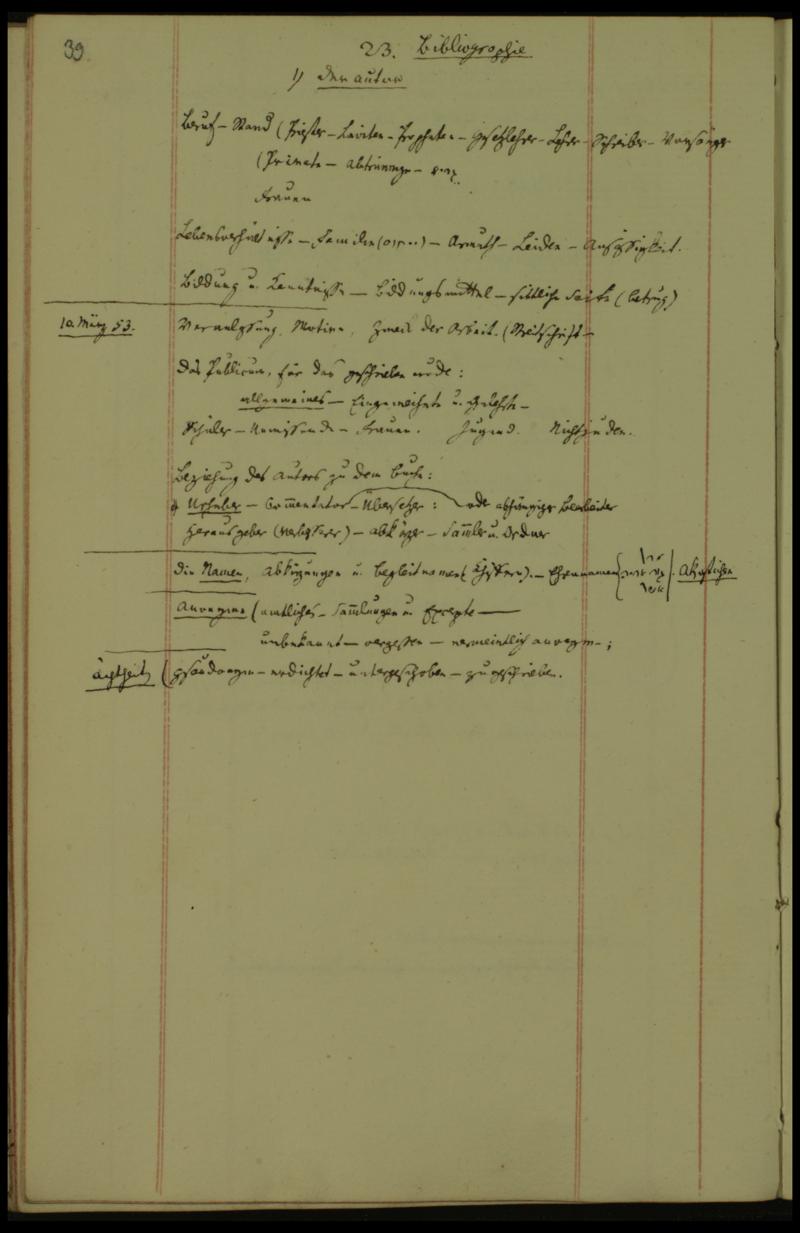 39
23. Bibliographie
1) Der Autor
Beruf - Stand (Priester - Leviten - Propheten - Gesetzlehrer - Lehrer - Schreiber - Vorsänger
(Private - Abtrünnige -
Frauen
Lebensverhältnisse - Familie - Armuth - Leiden - Ansässigkeit.
Bildung u. Kenntnisse - Bildungsmittel - sittliche Seite (Betrug)
10. März 53.
Veranlassung, Motive, Zweck der Arbeit. (Streitschrift -
Das Publicum, für das geschrieben wurde:
allgemeines - Eingeweihte u. Gelehrte -
Schüler - Unwissende - Frauen. Jugend. Nichtjuden.
Beziehung des Autors zu dem Buche:
Urheber - Com̄entator - Übersetzer: oder abhängiger Bearbeiter
Herausgeber (Verbesserer) - Abkürzer - Sam̄ler u. Ordner
Die Namen, Abkürzungen u. Begleitnamen (Chiffern). - Ehrennamen Akrostichen
Anonyme (amtliches - Sam̄lungen u. Excerpte -
unbekannt - vergessen - vermeintlich anonym - ;
Ächtheit (pseudonym - erdichtet - untergeschoben - zugeschrieben.